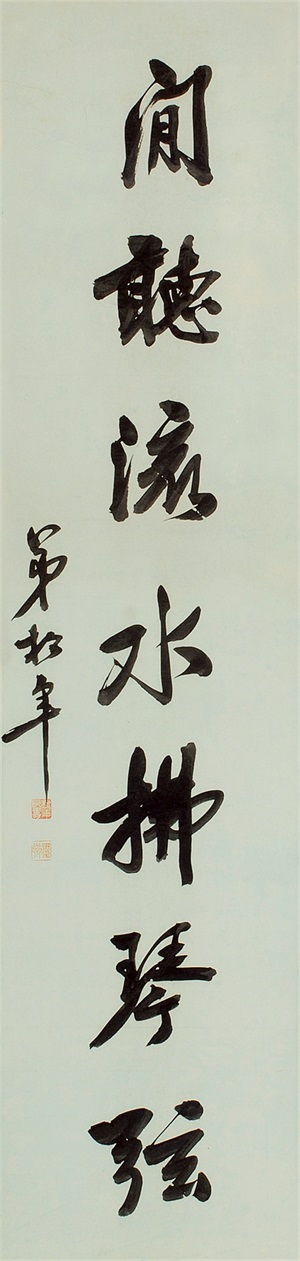 閒聽流水拂琴弦
弟松年